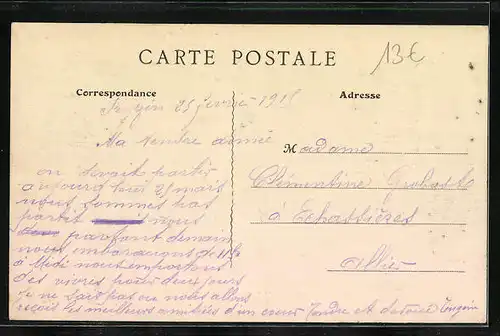 CARTE POSTALE
13€
Correspondance
Adresse
25 février 1915
Ma tendre aimée
on devait partir
aujourd'hui 25 mais
nous sommes pas
partit nous
partont demain
nous embarquons de 11h
à Midi nous emportons
des vivres pour deux jours
je ne sais pas ou nous allons
reçois les meilleurs amitiées d'un cœur tendre et
Madame
Clémentine
à Echassières
Allier